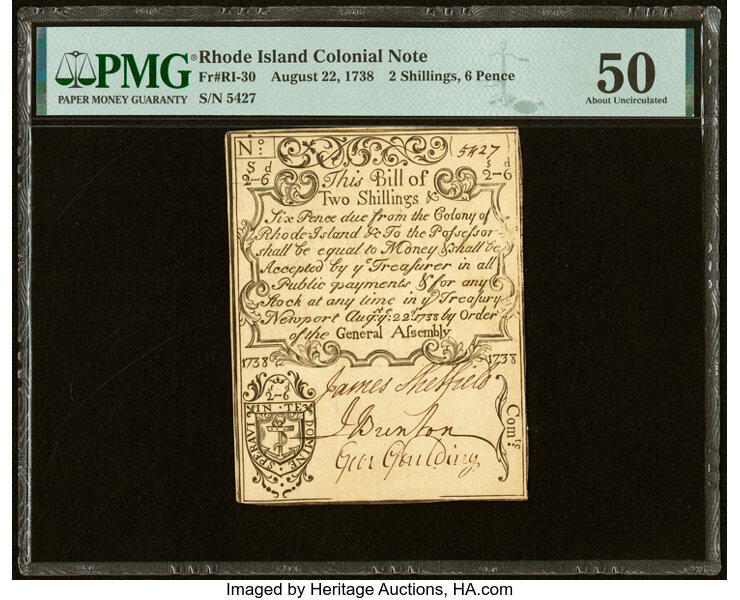 PMG® Rhode Island Colonial Note
PAPER MONEY GUARANTY
Fr#RI-30 August 22, 1738 2 Shillings, 6 Pence
S/N 5427
50
About Uncirculated
No: 5427
S d
2-6
s d
2-6
This Bill of
Two Shillings &
Six Pence due from the Colony of
Rhode-Island &c To the Possessor
shall be equal to Money & shall be
Accepted by ye Treasurer in all
Public payments & for any
Stock at any time in ye Treasury
Newport Augst ye: 22d 1738 by Order
of the General Assembly
1738 1738
2-6
IN·TE
DOMINE
SPERAVI
James Sheffield
Geo Goulding
Comte
Imaged by Heritage Auctions, HA.com